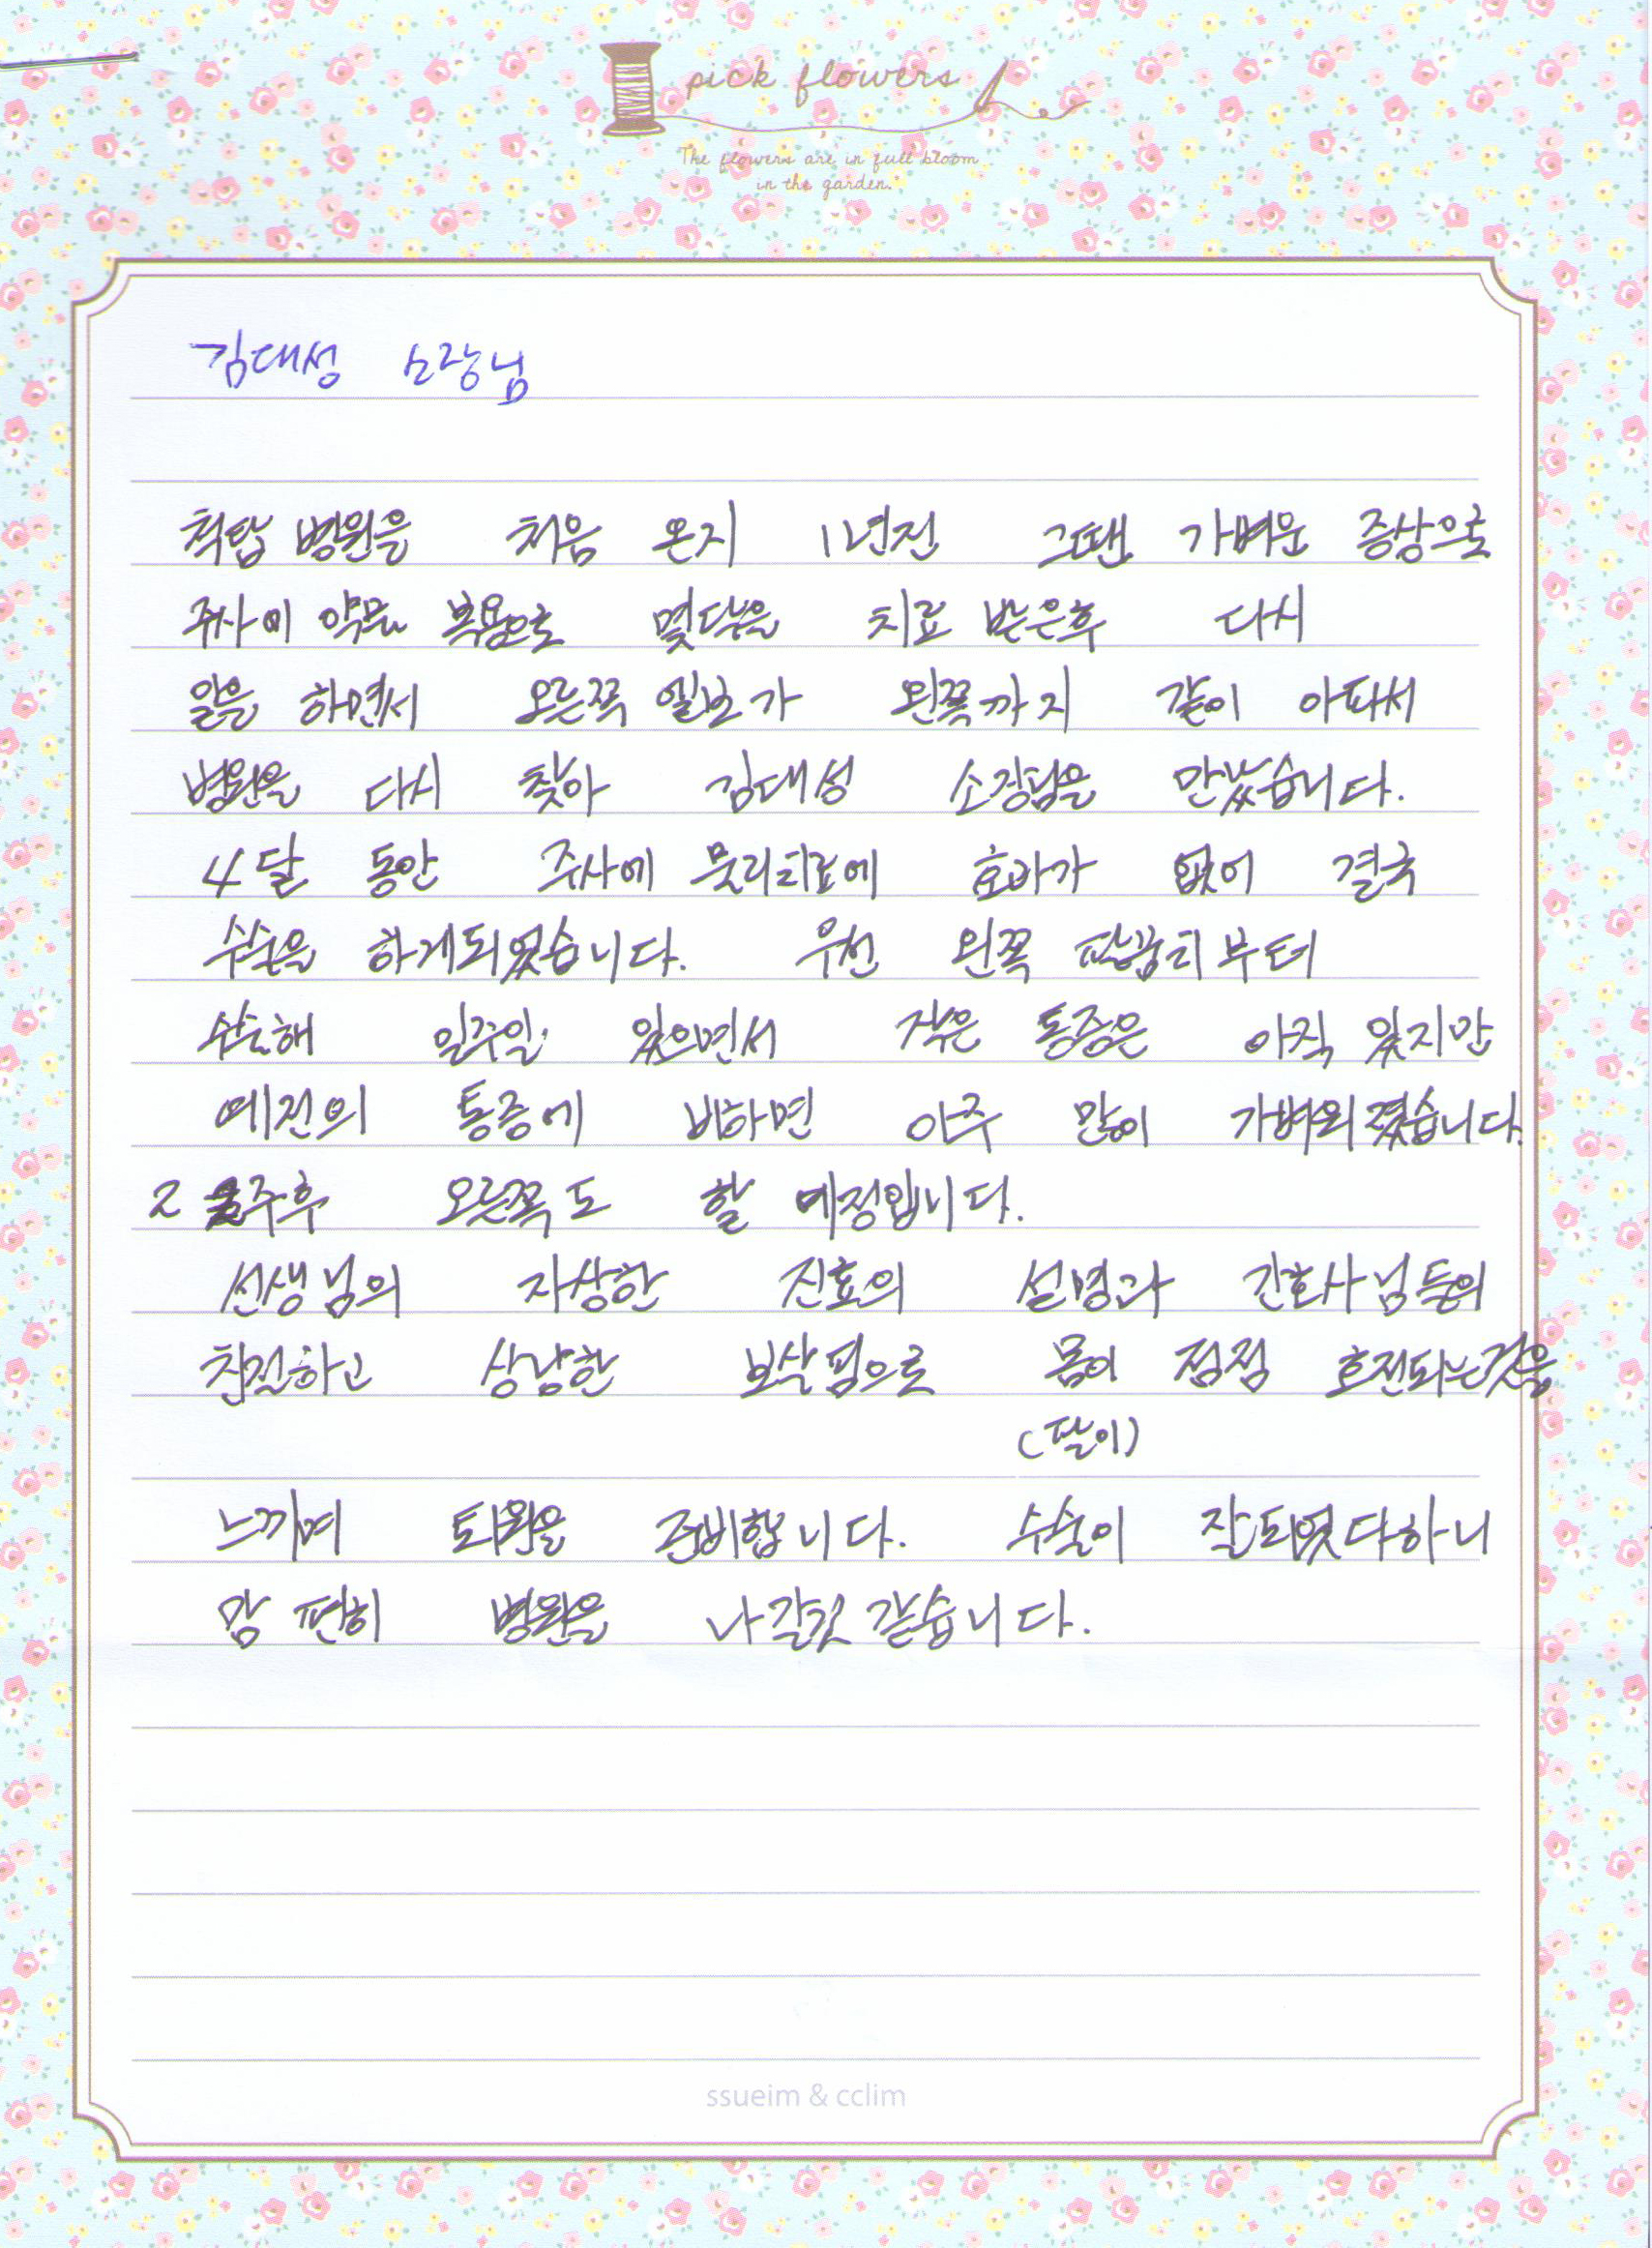 pick flowers
The flowers are in full bloom
in the garden.
김대성 소장님
척탑 병원을 처음 온지 1년전 그땐 가벼운 증상으로
주사에 약물 복용으로 몇달을 치료 받은후 다시
일을 하면서 오른쪽 엘보가 왼쪽까지 같이 아파서
병원을 다시 찾아 김대성 소장님을 만났습니다.
4달 동안 주사에 물리치료에 효과가 없어 결국
수술을 하게되었습니다. 우선 왼쪽 팔꿈치부터
수술해 일주일 있으면서 작은 통증은 아직 있지만
예전의 통증에 비하면 아주 많이 가벼워졌습니다.
2 주후 오른쪽도 할 예정입니다.
선생님의 자상한 진료의 설명과 간호사님들의
친절하고 상냥한 보살핌으로 몸이 점점 호전되는것을
(팔이)
느끼며 퇴원을 준비합니다. 수술이 잘되었다하니
맘 편히 병원을 나갈것 같습니다.
ssueim & cclim